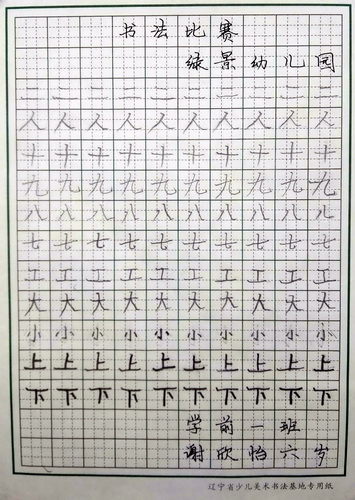 书法比赛
绿景幼儿园
二二二二二二二二二二
人人人人人人人人人人
十十十十十十十十十十
九九九九九九九九九九
八八八八八八八八八八
七七七七七七七七七七
工工工工工工工工工工
大大大大大大大大大大
小小小小小小小小小小
上上上上上上上上上上
下下下下下下下下下下
学前一班
谢欣怡六岁
辽宁省少儿美术书法基地专用纸